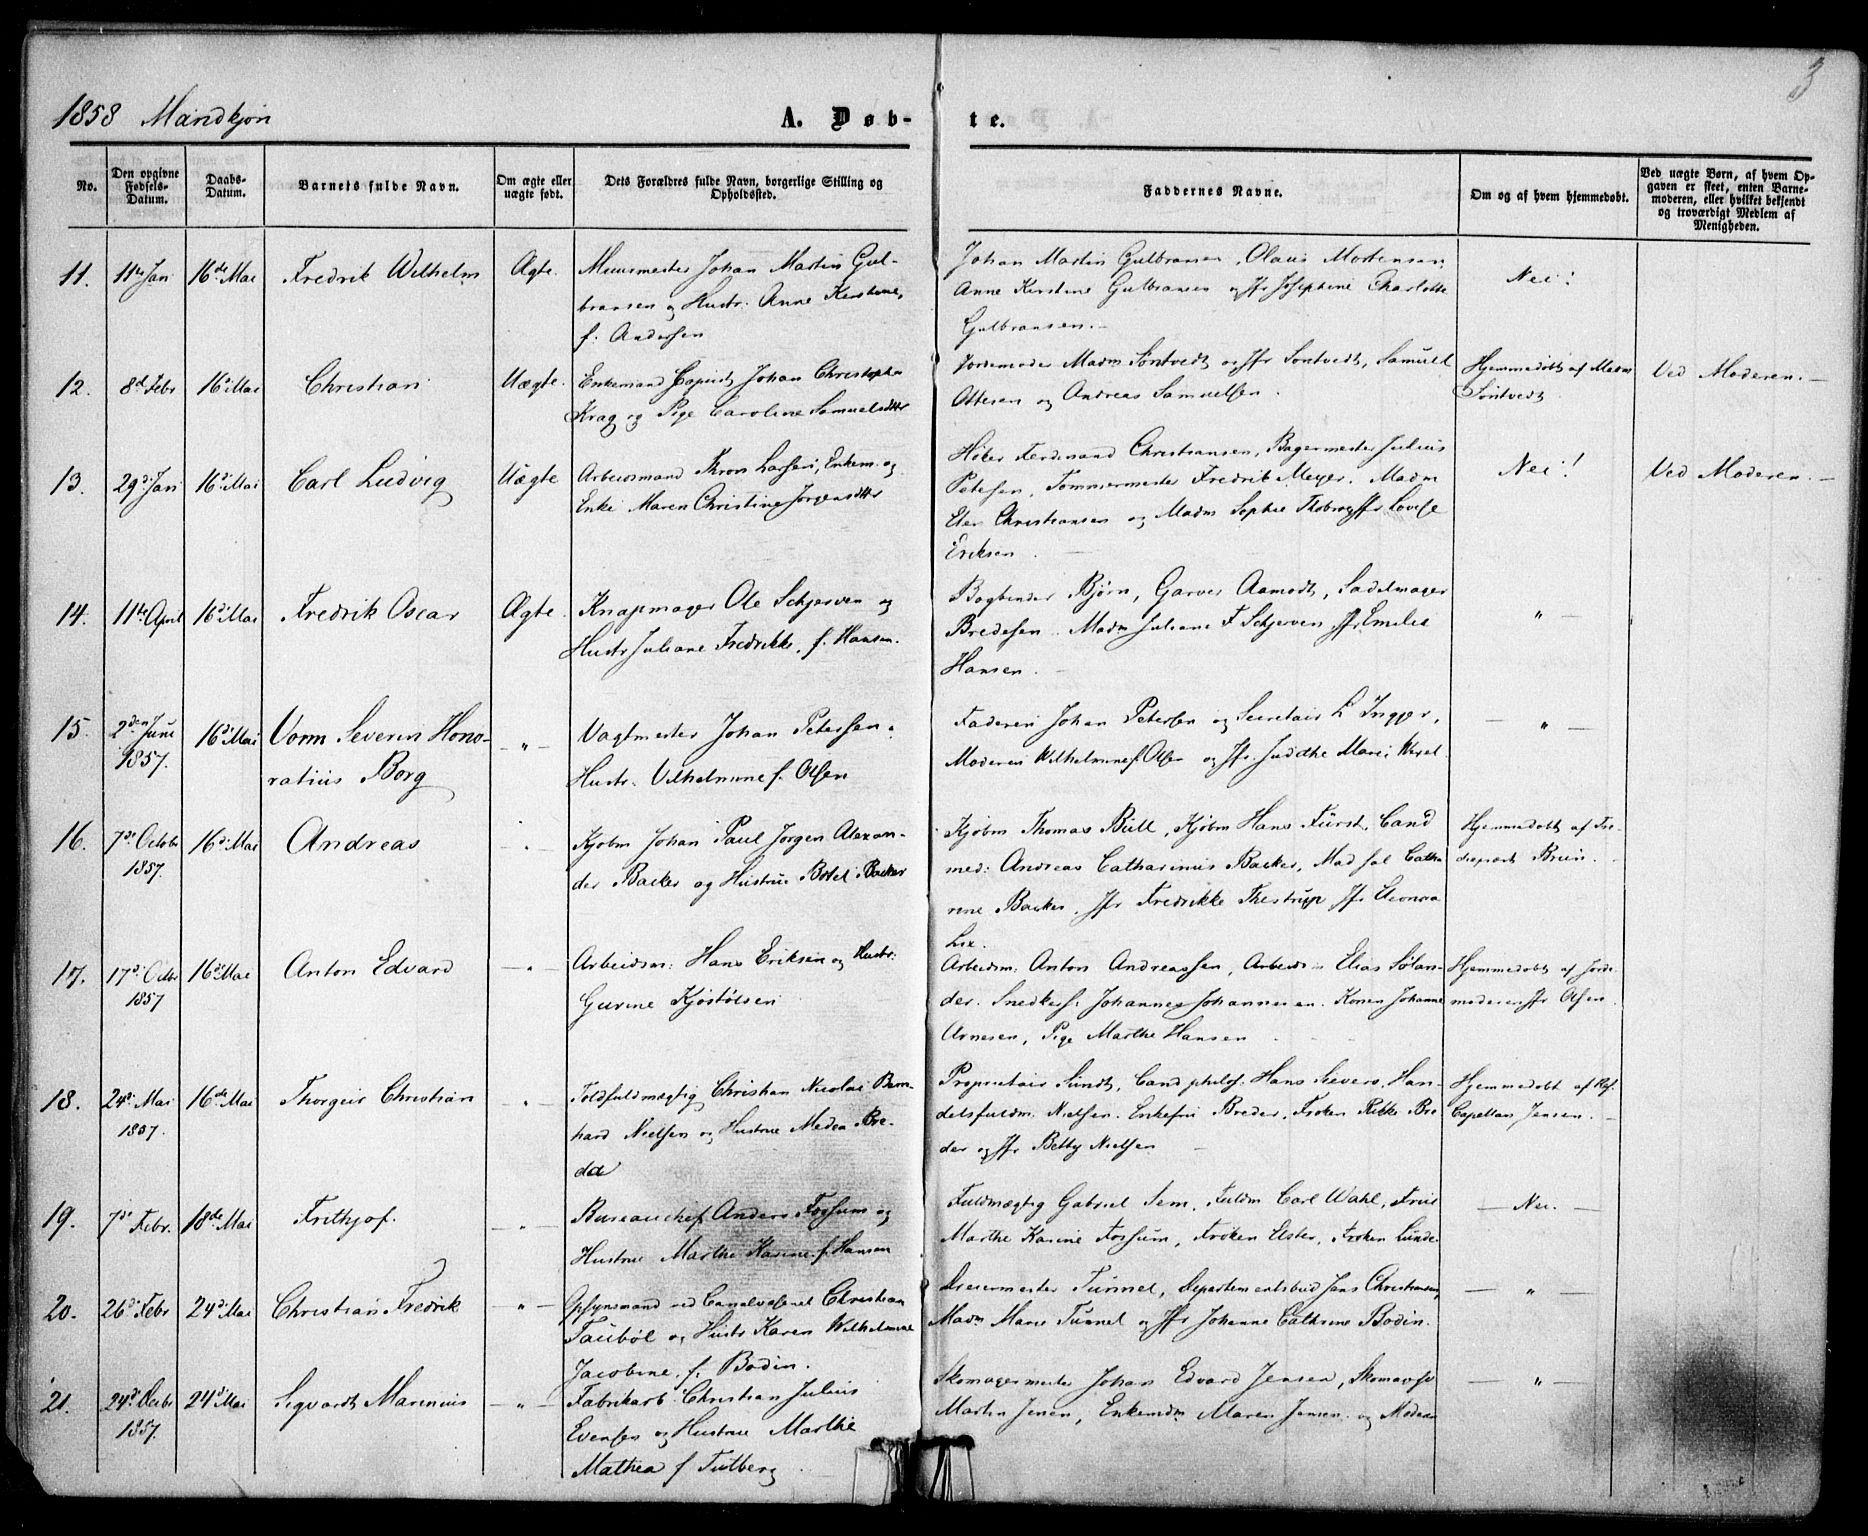 3
1858 Mandkjøn
A. Døb-
te.
No.
Den opgivne Fødsels-Datum.
Daabs-Datum.
Barnets fulde Navn.
Om ægte eller uægte født.
Dets Forældres fulde Navn, borgerlige Stilling og Opholdssted.
Faddernes Navne.
Om og af hvem hjemmedøbt.
Ved uægte Børn, af hvem Opgaven er skeet, enten Barnemoderen, eller hvilket bekjendt og troværdigt Medlem af Menigheden.
11. 11te Jan 16de Mai Fredrik Wilhelm Ægte.
Muurmester Johan Martin Gul-
bransen og Hustr. Anne Kirstine,
f. Andersen
Johan Martin Gulbransen, Olaus Mortensen,
Anne Kirstine Gulbransen og Jfr Josephine Charlotte
Gulbransen.
Nei!
12. 8de Febr 16de Mai Christian Uægte.
Enkemand Copiist Johan Christopher
Krag og Pige Caroline Samuelsdtr
Jordemoder Madm Söntvedt og Jfr Söntvedt, Samuel
Ottesen og Andreas Samuelsen.
Hjemmedøbt af Madm
Söntvedt
Ved Moderen.
13. 29de Jan 16de Mai Carl Ludvig Uægte
Arbeidsmand Thron Larsen, Enkem. og
Enke Maren Christine Jørgensdtr
Høker Ferdinand Christiansen, Bagermester Julius
Petersen, Tømmermester Fredrik Meyer, Madm
Christiansen og Madm Sophie Jfr Lovise
Eriksen
Nei!
Ved Moderen.
14. 11te April 16de Mai Fredrik Oscar Ægte.
Knapmager Ole Schjerven og
Hustr Juliane Fredrikke, f. Hansen.
Bogbinder Bjørn, Garver Aamodt, Sadelmager
Bredesen. Madm Juliane F Schjerven Jfr Emilie
Hansen.
"
15. 2den Juni 1857. 16de Mai Vorm Severin Hono-
ratius Borg "
Vagtmester Johan Petersen
Hustr. Vilhelmine f. Olsen
Faderen Johan Petersen og Secretair L Ingier,
Moderen Wilhelmine f. Olsen og Jfr. Judithe Marie Wexel
"
16. 7de Octobr 1857. 16de Mai Andreas
Kjøbm Johan Paul Jørgen Alexan-
der Backer og Hustrue Bolet Backer
Kjøbm Thomas Bull, Kjøbm Hans Fürst, Cand
med: Andreas Catharinus Backer, Mad sal Catha
rine Backer, Jfr Fredrikke Thestrup Jfr Eleonora
Lie.
Hjemmedøbt af
Bruun.
17. 17de Octbr 1857 16de Mai Anton Edvard "
Arbeidsm: Hans Eriksen og Hustr:
Gurine Kjøstolsen
Arbeidsm: Anton Andreassen, Arbeidsm Elias
der. Snedkers. Johannes Johannesen. Konen Johanne
Arnesen, Pige Marthe Hansen
Hjemmedøbt af Jorde
moderen Jfr Olsen.
18. 24de Mai 1857. 16de Mai Thorgeir Christian
Toldfuldmægtig Christian Nicolai Bern-
hard Nielsen og Hustrue Medea Bre-
da
Proprietair Sundt, Cand philos. Hans Sievers, Han-
delsfuldm. Nielsen. Enkefru Breder, Frøken Rikke Bre
der og Jfr Betty Nielsen
Hjemmedøbt af Res.
Capellan Jensen.
19. 7de Febr. 18de Mai Frithjof. "
Bureauchef Anders Fossum og
Hustrue Marthe Karine f. Hansen
Fuldmægtig Gabriel Sem, Fuldm Carl Wahl, Frue
Marthe Karine Fossum, Frøken Elster, Frøken Lunde
Nei.
20. 26de Febr 24de Mai Christian Fredrik "
Opsynsmand ved Canalvæsenet Christian
Taubøl og Hustr Karen Wilhelmine
Jacobine, f. Bodin.
Dreiermester Tunnel, Departementsbud Jens Christiansen,
Madm Marie Tunnel og Jfr Johanne Cathrine Bodin.
"
21. 24de 1857. 24de Mai Sigvardt Marinius "
Fabrikarb Christian Julius
Evensen og Hustrue Marthe
Mathea f Tutberg
Skomagermester Johan Edvard Jensen,
Martin Jensen, Maren Jensen og Moderen
"